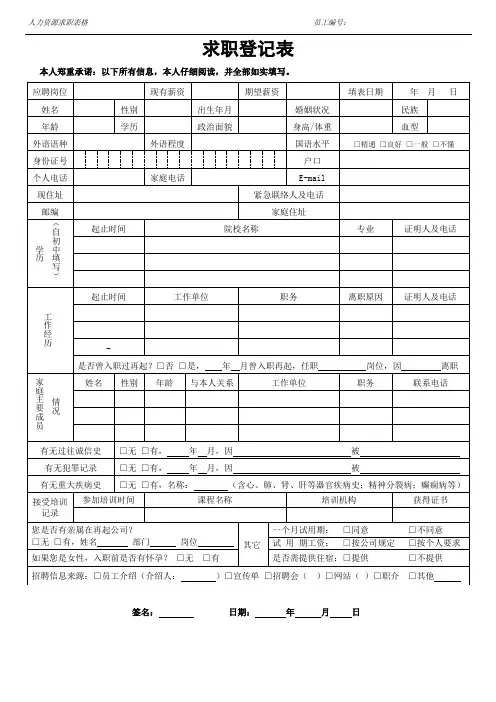 人力资源求职表格 员工编号:
求职登记表
本人郑重承诺：以下所有信息，本人仔细阅读，并全部如实填写。
应聘岗位 现有薪资 期望薪资 填表日期 年 月 日
姓名 性别 出生年月 婚姻状况 民族
年龄 学历 政治面貌 身高/体重 血型
外语语种 外语程度 国语水平 □精通 □良好 □一般 □不懂
身份证号 户口
个人电话 家庭电话 E-mail
现住址 紧急联络人及电话
邮编 家庭住址
学历（自初中填写） 起止时间 院校名称 专业 证明人及电话
工作经历 起止时间 工作单位 职务 离职原因 证明人及电话
-
是否曾入职过再起？□否 □是， 年 月曾入职再起，任职 岗位，因 离职
家庭主要成员情况 姓名 性别 年龄 与本人关系 工作单位 职务 联系电话
有无过往诚信史 □无 □有， 年 月，因 被
有无犯罪记录 □无 □有， 年 月，因 被
有无重大疾病史 □无 □有，名称： （含心、肺、肾、肝等器官疾病史；精神分裂病；癫痫病等）
接受培训记录 参加培训时间 课程名称 培训机构 获得证书
您是否有亲属在再起公司？
□无 □有，姓名 部门 岗位
如果您是女性，入职前是否有怀孕？ □无 □有
其它
一个月试用期： □同意 □不同意
试 用 期工资： □按公司规定 □按个人要求
是否需提供住宿：□提供 □不提供
招聘信息来源：□员工介绍（介绍人： ）□宣传单 □招聘会（ ）□网站（ ）□职介 □其他
签名： 日期： 年 月 日